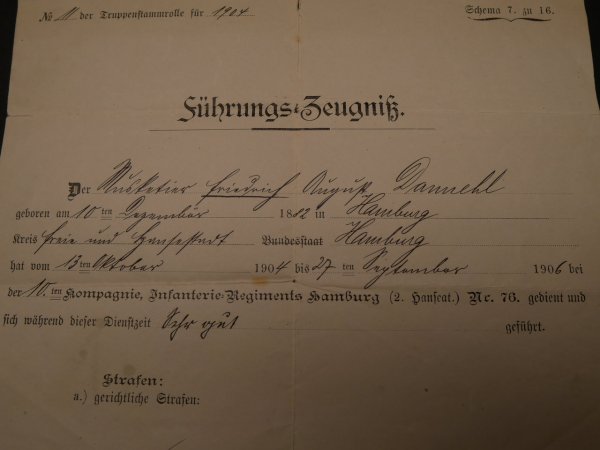 № 11 der Truppenstammrolle für 1904
Schema 7. zu 16.
Führungs-Zeugniß.
Der Musketier Friedrich August Dannehl
geboren am 10ten Dezember 1882 in Hamburg
Kreis freie und Hansestadt Bundesstaat Hamburg
hat vom 13ten Oktober 1904 bis 27ten September 1906 bei
der 10.ten Kompagnie, Infanterie-Regiments Hamburg (2. Hanseat.) Nr. 76. gedient und
sich während dieser Dienstzeit Sehr gut geführt.
Strafen:
a.) gerichtliche Strafen: